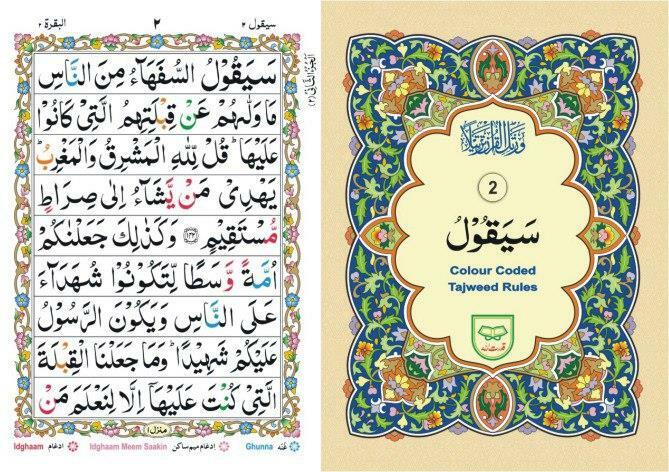 سيقول ٢
٢
البقرة ٢
سَيَقُوْلُ السُّفَهَآءُ مِنَ النَّاسِ
مَا وَلّٰىهُمْ عَنْ قِبْلَتِهِمُ الَّتِىْ كَانُوْا
عَلَيْهَا ؕ قُلْ لِّلّٰهِ الْمَشْرِقُ وَالْمَغْرِبُ ؕ
يَهْدِىْ مَنْ يَّشَآءُ اِلٰى صِرَاطٍ
مُّسْتَقِيْمٍ ﴿۱۴۲﴾ وَكَذٰلِكَ جَعَلْنٰكُمْ
اُمَّةً وَّسَطًا لِّتَكُوْنُوْا شُهَدَآءَ
عَلَى النَّاسِ وَيَكُوْنَ الرَّسُوْلُ
عَلَيْكُمْ شَهِيْدًا ؕ وَمَا جَعَلْنَا الْقِبْلَةَ
الَّتِىْ كُنْتَ عَلَيْهَآ اِلَّا لِنَعْلَمَ مَنْ
منزل ١
الجزء الثانى (٢)
Idghaam ادغام Idghaam Meem Saakin ادغام ميم ساكن Ghunna غنّه
ورتل القرآن ترتيلا
2
سَيَقُوْلُ
Colour Coded
Tajweed Rules
قدرت الله